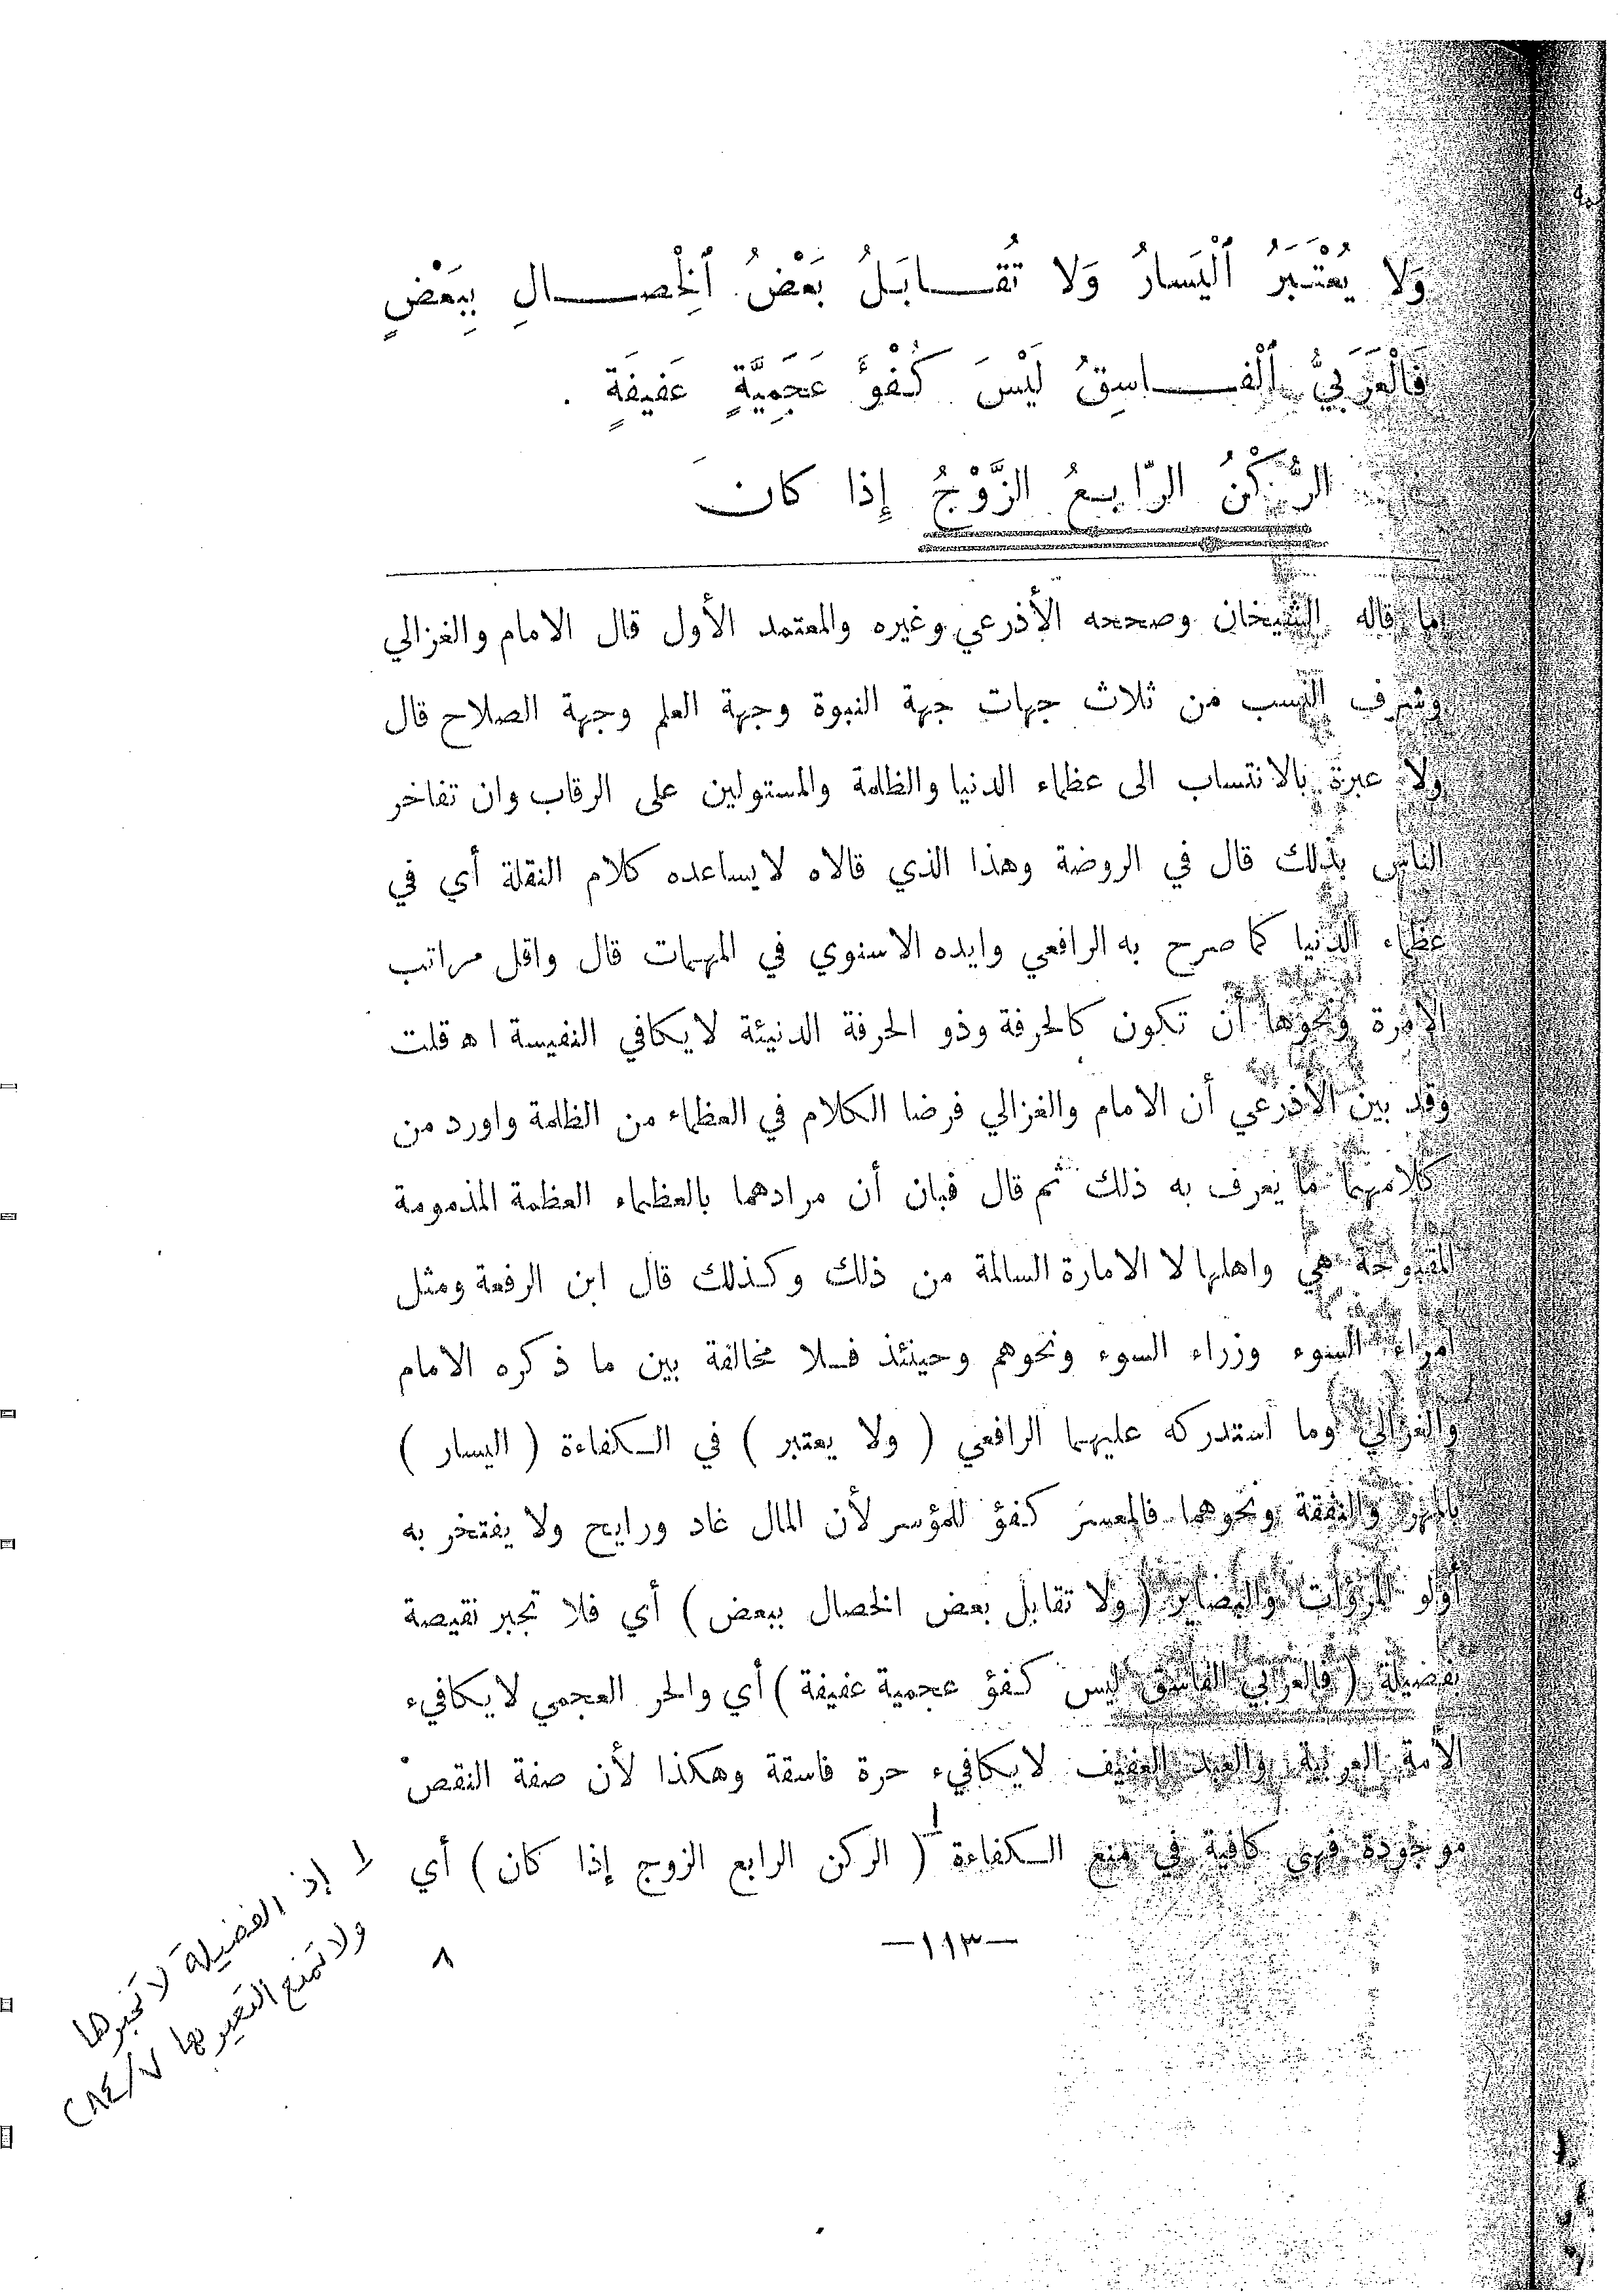 وَلا يُعْتَبَرُ ٱلْيَسارُ وَلا تُقـــابَلُ بَعْضُ ٱلْخِصـــالِ بِبَعْضٍ
فَٱلْعَرَبِيُّ ٱلْفـــاسِقُ لَيْسَ كُفْؤَ عَجَمِيَّةٍ عَفيفَةٍ .
الرُّكْنُ الرّابِعُ الزَّوْجُ إِذا كانَ
ما قاله الشيخان وصححه الأذرعي وغيره والمعتمد الأول قال الامام والغزالي
وشرف النسب من ثلاث جهات جهة النبوة وجهة العلم وجهة الصلاح قال
ولا عبرة بالانتساب الى عظماء الدنيا والظلمة والمستولين على الرقاب وان تفاخر
الناس بذلك قال في الروضة وهذا الذي قالاه لايساعده كلام النقلة أي في
عظماء الدنيا كما صرح به الرافعي وايده الاسنوي في المهمات قال واقل مراتب
الامرة ونحوها أن تكون كالحرفة وذو الحرفة الدنيئة لايكافي النفيسة ا ه قلت
وقد بين الأذرعي أن الامام والغزالي فرضا الكلام في العظماء من الظلمة واورد من
كلامهما ما يعرف به ذلك ثم قال فبان أن مرادهما بالعظماء العظمة المذمومة
المقبوحة هي واهلها لا الامارة السالمة من ذلك وكذلك قال ابن الرفعة ومثل
امراء السوء وزراء السوء ونحوهم وحينئذ فـلا مخالفة بين ما ذكره الامام
والغزالي وما استدركه عليهما الرافعي ( ولا يعتبر ) في الـكفاءة ( اليسار )
بالمهر والنفقة ونحوهما فالمعسر كفؤ للمؤسر لأن المال غاد ورايح ولا يفتخر به
أولو المرؤآت والبصاير ( ولا تقابل بعض الخصال ببعض ) أي فلا تجبر نقيصة
بفضيلة ( فالعربي الفاسق ليس كفؤ عجمية عفيفة ) أي والحر العجمي لايكافيء
الأمة العربية والعبد العفيف لايكافيء حرة فاسقة وهكذا لأن صفة النقص
موجودة فهي كافية في منع الـكفاءة ١ ( الركن الرابع الزوج إذا كان ) أي
—١١٣—
٨
١ إذ الفضيلة لا تجبرها
ولا تمنع التعير بها ٧/٢٨٤